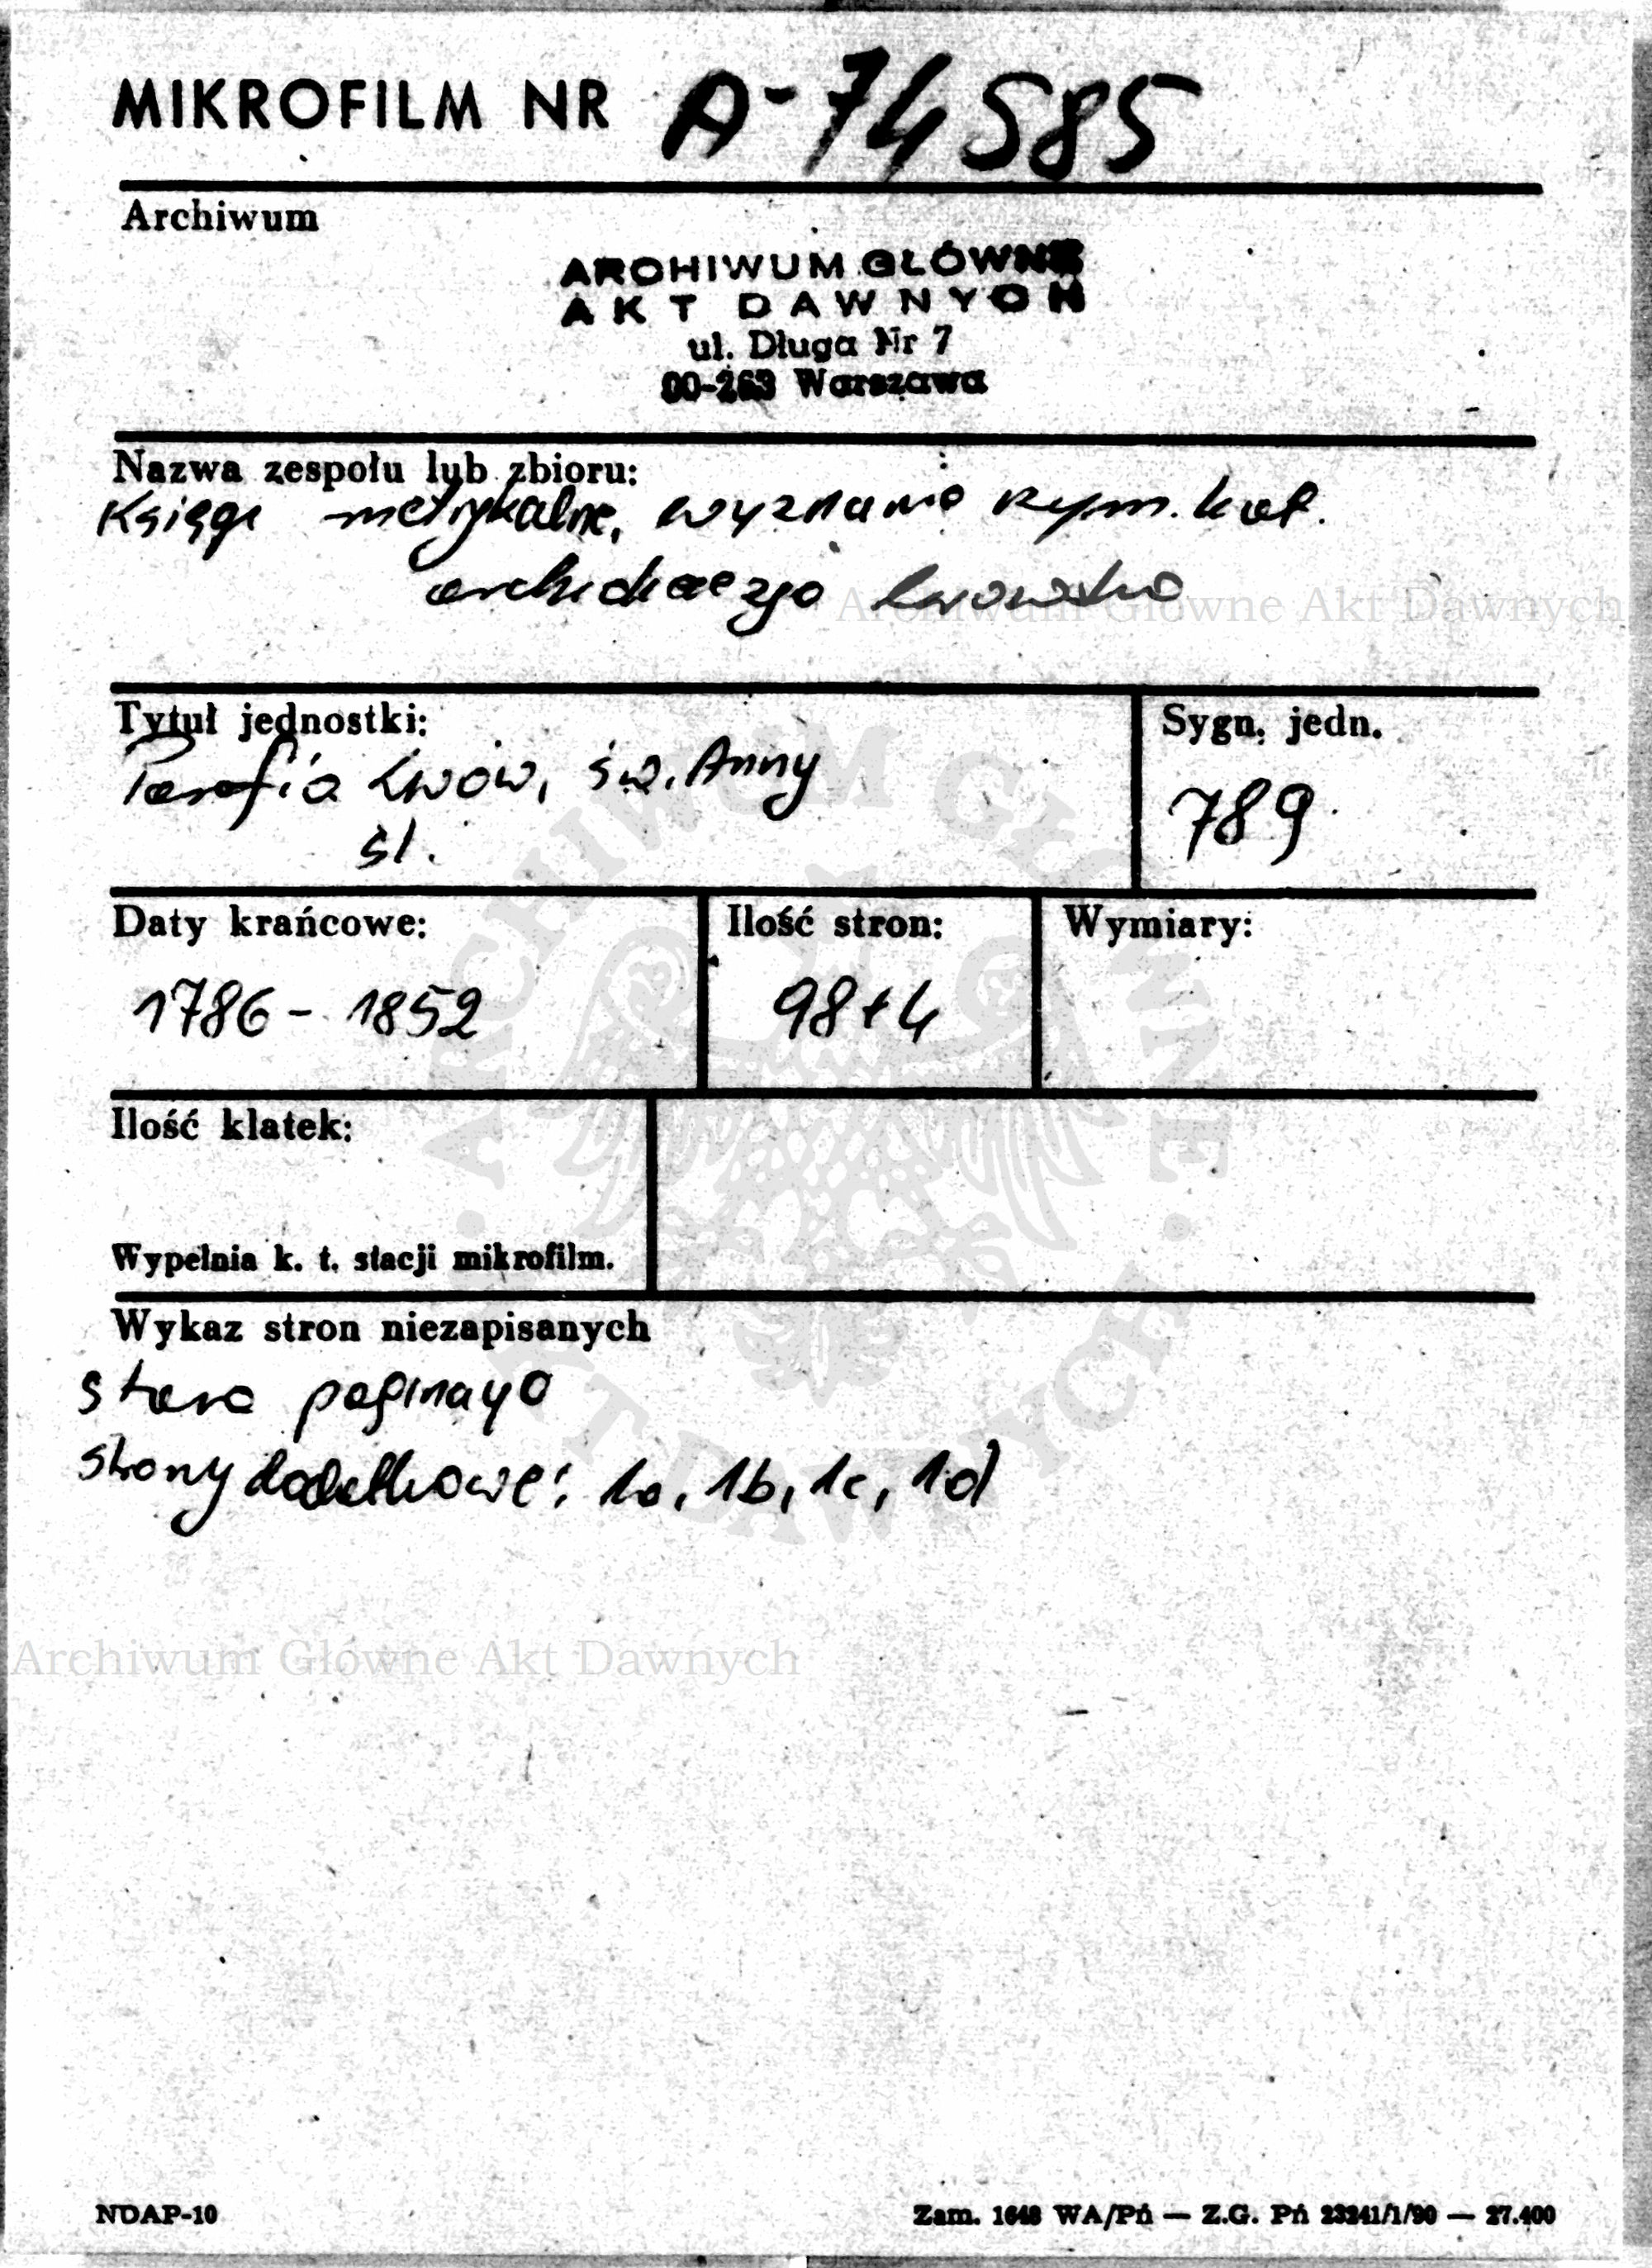 MIKROFILM NR A-74585
Archiwum
ARCHIWUM GŁÓWNE
AKT DAWNYCH
ul. Długa Nr 7
00-263 Warszawa
Nazwa zespołu lub zbioru:
Księgi metrykalne, wyznania rzym. kat.
archidiecezja lwowska
Archiwum Główne Akt Dawnych
Tytuł jednostki:
Parafia Lwów, św. Anny
śl.
Sygn. jedn.
789
Daty krańcowe:
1786 - 1852
Ilość stron:
98+4
Wymiary:
Ilość klatek:
Wypełnia k. t. stacji mikrofilm.
ARCHIWUM GŁÓWNE AKT DAWNYCH
Wykaz stron niezapisanych
stara paginacja
strony dodatkowe: 1a, 1b, 1c, 1d
Archiwum Główne Akt Dawnych
NDAP-10
Zam. 1648 WA/Pń — Z.G. Pń 23241/1/90 — 27.400